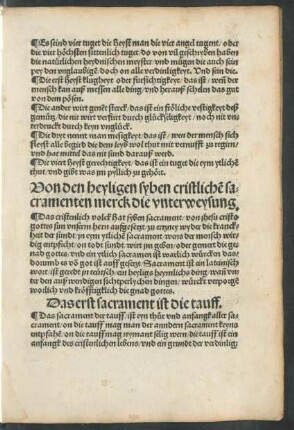 ¶Es seind vier tuget die heyst man die vier angel tugent / oder
die vier höchsten sittenlich tuget do von vil geschryben haben
die natürlichen heydnischen meyster vnd mügen die auch sein
per den vnglaubige doch on alle verdinligkeyt. Vnd sein die.
¶Die erst heyst klugheyt oder fürsichtigkeyt, das ist / wen der
mensch kan auß messen alle ding / vnd herauß schelen das gut
von dem pösen.
¶Die ander wirt genēt sterck, das ist ein frölliche vestigkeyt deß
gemütz, die nit wirt verfürt durch glückseligkeyt / noch nit vn
derdruckt durch keyn vnglück.
¶Die dryt nennt man messigkeyt, das ist / wen der mensch sich
fleyst alle begird die den leyb wol thut mit vernufft zu regirn /
vnd hat mittel das nit sünd darauß werd.
¶Die viert heyst gerechtigkeyt / das ist ein tuget die eym ytlichē
thut / vnd gibt was jm pyllich zu gehört.
Von den heyligen syben cristlichē sa-
cramenten merck die vnterweysung.
¶Das cristenlich volck hat syben sacrament / von jhesu cristo
gottes sun vnserm hern auffgesetzt zu ertzney wyder die kranck
heyt der sündt zu eym ytlichē sacrament wenn der mensch wir
dig entpfecht / on tod sündt, wirt jm geben / oder gemert die ge
nad gottes / vnd ein ytlich sacrament ist warlich würcken das /
dorumb es von got ist auff gesetzt. Sacrament ist ein lateinisch
wort / ist geredt zu teütsch / ein heyligs heymlichs ding / wañ vn
ter den auß wendigen sichtperlychen dingen / würckt verporgē
worlich vnd kröfftigklich die gnad gottes.
Das erst sacrament ist die tauff.
¶Das sacrament der tauff / ist eyn thür vnd anfangk aller sa-
crament / on die tauff mag man der anndern sacrament keyns
entpfahē / on die tauff mag nymant selig wern. die tauff ist ein
anfangk des cristenlichen lebens / vnd ein grundt der verdinlig /